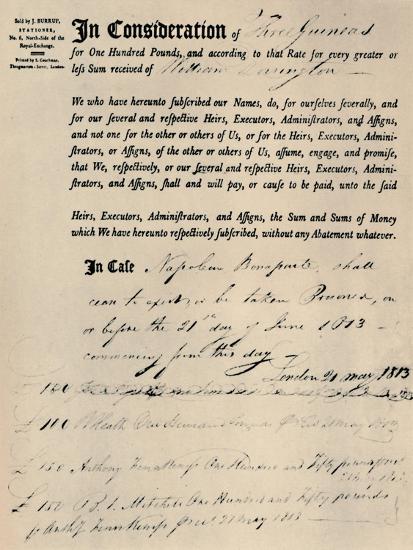 Sold by J. BURRUP,
STATIONER,
No. 6, North-Side of the
Royal-Exchange.
Printed by S. Couchman,
Throgmorton-Street, London.
In Consideration of Three Guineas
for One Hundred Pounds, and according to that Rate for every greater or
leſs Sum received of William Dorrington
We who have hereunto ſubſcribed our Names, do, for ourſelves ſeverally, and
for our ſeveral and reſpective Heirs, Executors, Adminiſtrators, and Aſſigns,
and not one for the other or others of Us, or for the Heirs, Executors, Admini-
ſtrators, or Aſſigns, of the other or others of Us, aſſume, engage, and promiſe,
that We, reſpectively, or our ſeveral and reſpective Heirs, Executors, Admini-
ſtrators, and Aſſigns, ſhall and will pay, or cauſe to be paid, unto the ſaid
Heirs, Executors, Adminiſtrators, and Aſſigns, the Sum and Sums of Money
which We have hereunto reſpectively ſubſcribed, without any Abatement whatever.
In Caſe Napoleon Bonaparte shall
cease to exist, or be taken Prisoner, on
or before the 21st day of June 1813 –
commencing from this day –
London 21 May 1813
£ 100 Heath One Hundred 21 May
£ 150 Anthony One Hundred and Fifty pounds
£ 150 Mitchell One Hundred and Fifty pounds
21 May 1813